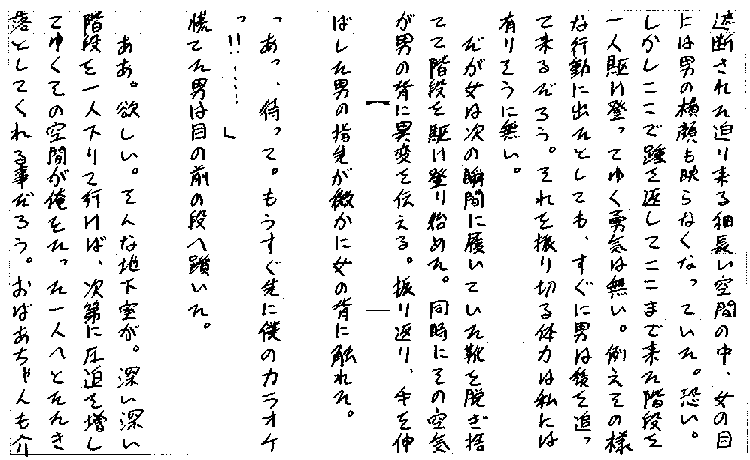 遮断された迫り来る細長い空間の中、女の目
には男の横顔も映らなくなっていた。恐い。
しかしここで踵を返してここまで来た階段を
一人駆け登ってゆく勇気は無い。例えその様
な行動に出たとしても、すぐに男は後を追っ
て来るだろう。それを振り切る体力は私には
有りそうに無い。
だが女は次の瞬間に履いていた靴を脱ぎ捨
てて階段を駆け登り始めた。同時にその空気
が男の背に異変を伝える。振り返り、手を伸
ばした男の指先が微かに女の背に触れた。
「あっ、待って。もうすぐ先に僕のカラオケ
っ!!……」
慌てた男は目の前の段へ躓いた。
ああ。欲しい。そんな地下室が。深い深い
階段を一人下りて行けば、次第に圧迫を増し
てゆくその空間が俺をたった一人へとたたき
落としてくれる事だろう。おばあちゃんも介